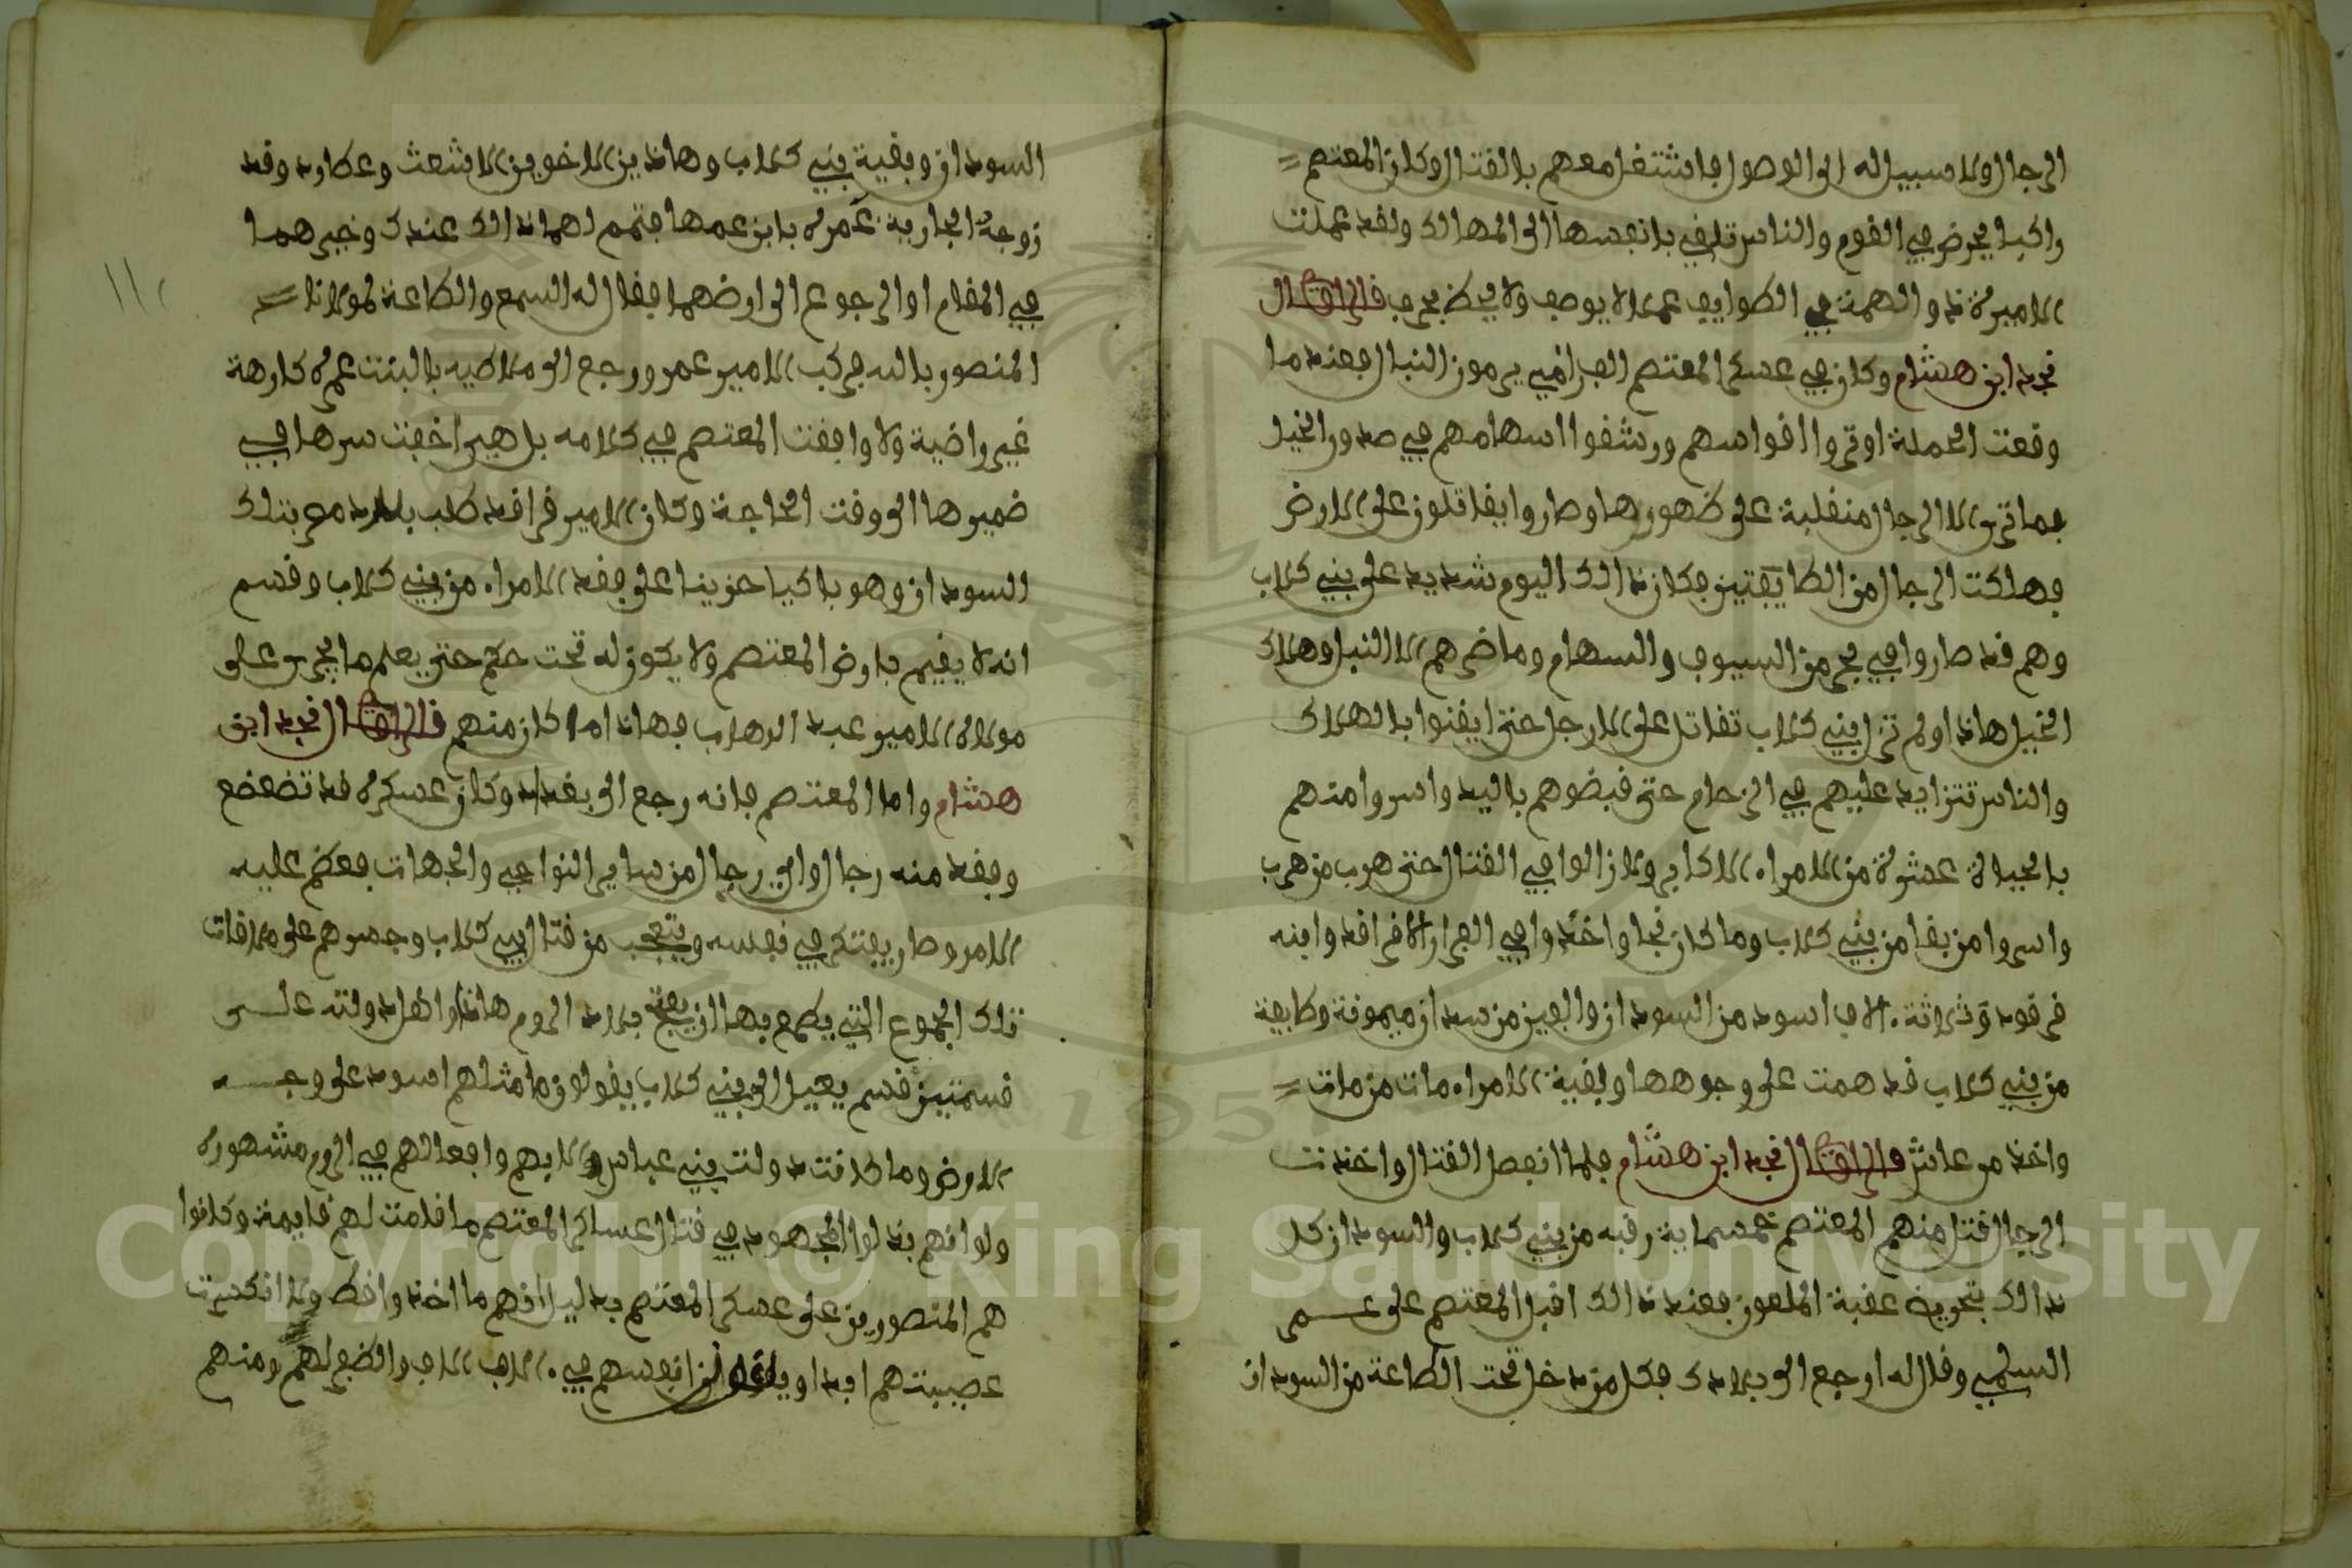 الرجال ولا سبيل له الى الوصول فاشتغل معهم بالقتال وكان المعتصم
راكبا يحرض في القوم والناس تلقي بانفسها الى المهالك ولقد عملت
الاميرة ذو الهمة في الطوايف عملا لا يوصف ولا يحظ بحرف قال الراوي قال
نجد ابن هشام وكان في عسكر المعتصم يرمون النبال فعند ما
وقعت الحملة اوتروا اقواسهم ورشقوا اسهامهم في صدور الخيل
فما ترى الا الرجال منقلبة على ظهورها وصاروا يقاتلون على الارض
فهلكت الرجال من الطايفتين فكان ذالك اليوم شديد على بني كلاب
وهم قد صاروا في بحر من السيوف والسهام وما ضرهم الا النبل وهلاك
الخيل هاذا ولم تزل بني كلاب تقاتل على الارجل حتى ايقنوا بالهلاك
والناس تتزايد عليهم في الزحام حتى قبضوهم باليد واسروا منهم
بالحياة عشرة من الامراء الاكابر ولا زالوا في القتال حتى هرب من هرب
واسروا من بقا من بني كلاب وما كان نجا واخذوا في الفرار الا قراقد وابنه
فرقود وثلاثة الاف اسود من السودان والفين من سدان ميمونة وطايفة
من بني كلاب قد همت على وجوهها وبقية الامراء مات من مات
واخذ من عاش قال الراوي قال نجد ابن هشام فلما انفصل القتال واخذت
الرجال قتل منهم المعتصم خمسماية رقبه من بني كلاب والسودان كل
ذالك بتحريض عقبة الملعون فعند ذالك اقبل المعتصم على عمر
السلمي وقال له ارجع الى بلادك فكل من دخل تحت الطاعة من السودان
السودان وبقية بني كلاب وهاذين الاخوين الاشعث وعطارد وقد
زوجة الجارية عمرة بابن عمها فتمم لهما ذالك عندك وخيرهما
في المقام او الرجوع الى ارضهما فقال له السمع والطاعة لمولانا
المنصور بالله فركب الامير عمر ورجع الى ملاطيه بالبنت عمره كارهة
غير راضية ولا وافقت المعتصم في كلامه بل هي اخفت سرها في
ضميرها الى وقت الحاجة وكان الامير قراقد طلب بلاده مع بنلك
السودان وهو باكيا حزينا على فقد الامراء من بني كلاب وقسم
انه لا يقيم بارض المعتصم ولا يكون له تحت حكم حتى يعلم ما يجرى على
مولاه الامير عبد الوهاب فهاذا ما كان منهم قال الراوي قال نجد ابن
هشام واما المعتصم فانه رجع الى بغداد وكان عسكره قد تضعضع
وفقد منه رجال واي رجال من ساير النواحي والجهات فعظم عليه
الامر وصار يفتكر في نفسه ويتعجب من قتال بني كلاب وجسرهم على ملاقات
تلك الجموع التي يطمع بها ان يفتح بلاد الروم هاذا واهل دولته على
قسمتين قسم يعيل الى بني كلاب يقولون ما مثلهم اسود على وجه
الارض وما كانت دولت بني عباس الا بهم وافعالهم في الروم مشهوره
ولو انهم بذلوا المجهود في قتال عساكر المعتصم ما قامت لهم قايمة وكانوا
هم المنصورين على عسكر المعتصم بدليل انهم ما اخذوا قط ولا انكسرت
عصبيتهم ابدا انفسهم في الاف الاف والضفر لهم ومنهم